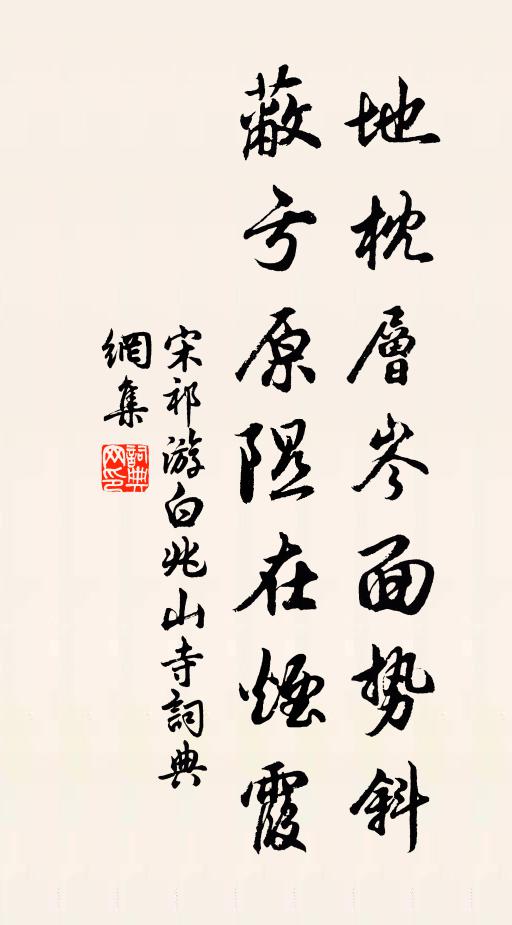 地枕層岑面势斜
蔽亏原隰在煙霞
宋祁游白兆山寺詞典
網集
詞典網印